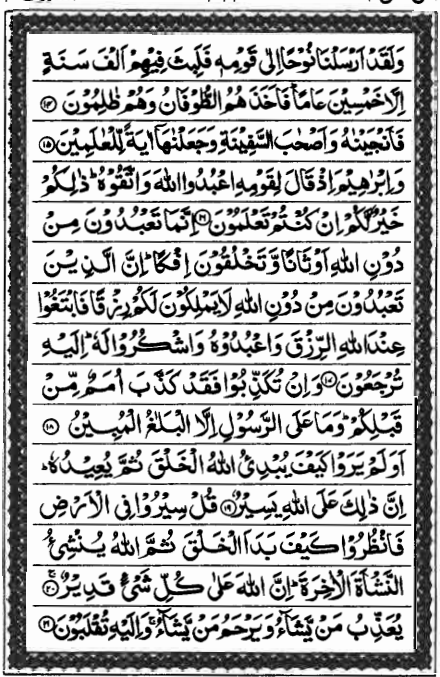 وَلَقَدْ اَرْسَلْنَا نُوْحًا اِلٰى قَوْمِهٖ فَلَبِثَ فِيْهِمْ اَلْفَ سَنَةٍ
اِلَّا خَمْسِيْنَ عَامًا ؕ فَاَخَذَهُمُ الطُّوْفَانُ وَهُمْ ظٰلِمُوْنَ ﴿۱۴﴾
فَاَنْجَيْنٰهُ وَاَصْحٰبَ السَّفِيْنَةِ وَجَعَلْنٰهَاۤ اٰيَةً لِّلْعٰلَمِيْنَ ﴿۱۵﴾
وَاِبْرٰهِيْمَ اِذْ قَالَ لِقَوْمِهِ اعْبُدُوا اللّٰهَ وَاتَّقُوْهُ ؕ ذٰلِكُمْ
خَيْرٌ لَّكُمْ اِنْ كُنْتُمْ تَعْلَمُوْنَ ﴿۱۶﴾ اِنَّمَا تَعْبُدُوْنَ مِنْ
دُوْنِ اللّٰهِ اَوْثَانًا وَّتَخْلُقُوْنَ اِفْكًا ؕ اِنَّ الَّذِيْنَ
تَعْبُدُوْنَ مِنْ دُوْنِ اللّٰهِ لَا يَمْلِكُوْنَ لَكُمْ رِزْقًا فَابْتَغُوْا
عِنْدَ اللّٰهِ الرِّزْقَ وَاعْبُدُوْهُ وَاشْكُرُوْا لَهٗ ؕ اِلَيْهِ
تُرْجَعُوْنَ ﴿۱۷﴾ وَاِنْ تُكَذِّبُوْا فَقَدْ كَذَّبَ اُمَمٌ مِّنْ
قَبْلِكُمْ ؕ وَمَا عَلَى الرَّسُوْلِ اِلَّا الْبَلٰغُ الْمُبِيْنُ ﴿۱۸﴾
اَوَلَمْ يَرَوْا كَيْفَ يُبْدِئُ اللّٰهُ الْخَلْقَ ثُمَّ يُعِيْدُهٗ ؕ
اِنَّ ذٰلِكَ عَلَى اللّٰهِ يَسِيْرٌ ﴿۱۹﴾ قُلْ سِيْرُوْا فِى الْاَرْضِ
فَانْظُرُوْا كَيْفَ بَدَاَ الْخَلْقَ ثُمَّ اللّٰهُ يُنْشِئُ
النَّشْاَةَ الْاٰخِرَةَ ؕ اِنَّ اللّٰهَ عَلٰى كُلِّ شَىْءٍ قَدِيْرٌ ﴿۲۰﴾
يُعَذِّبُ مَنْ يَّشَآءُ وَيَرْحَمُ مَنْ يَّشَآءُ ۚ وَاِلَيْهِ تُقْلَبُوْنَ ﴿۲۱﴾